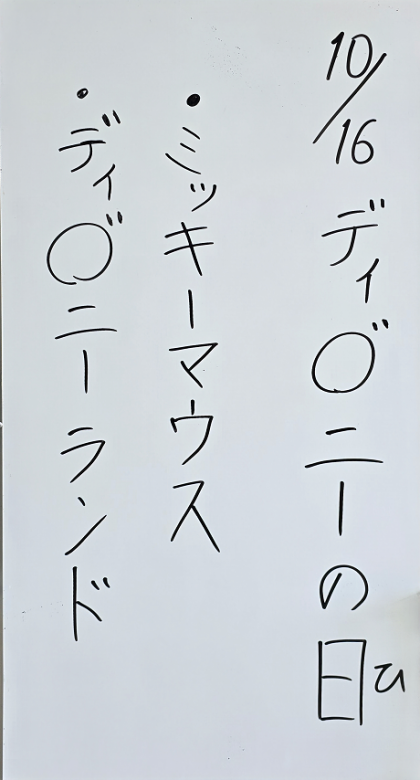 10/16 ディ○゛ニーの日
ひ
・ミッキーマウス
・ディ○゛ニーランド